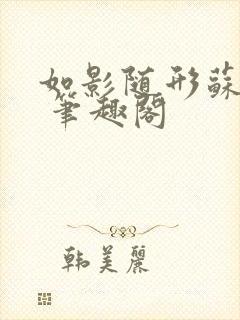 如影随形蘇
笔趣阁
韩美麗